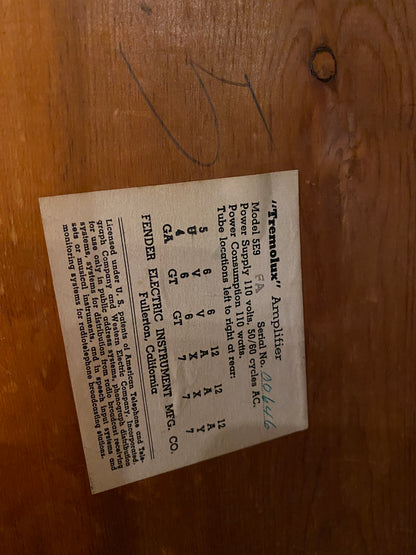 "Tremolux" Amplifier
Model 5E9 FA Serial No. 00646
Power Supply 110 volts, 50/60 cycles AC.
Power Consumption 110 watts.
Tube locations left to right at rear:
5 6 6 12 12 12
U V V A A A
4 6 6 X X Y
GA GT GT 7 7 7
FENDER ELECTRIC INSTRUMENT MFG. CO.
Fullerton, California
Licensed under U. S. patents of American Telephone and Tele-
graph Company and Western Electric Company, Incorporated
for use only in public address systems, phonograph distribution
systems, systems for distribution from radio broadcast receiving
sets or musical instruments, and in speech input systems and
monitoring systems for radiotelephone broadcasting stations.